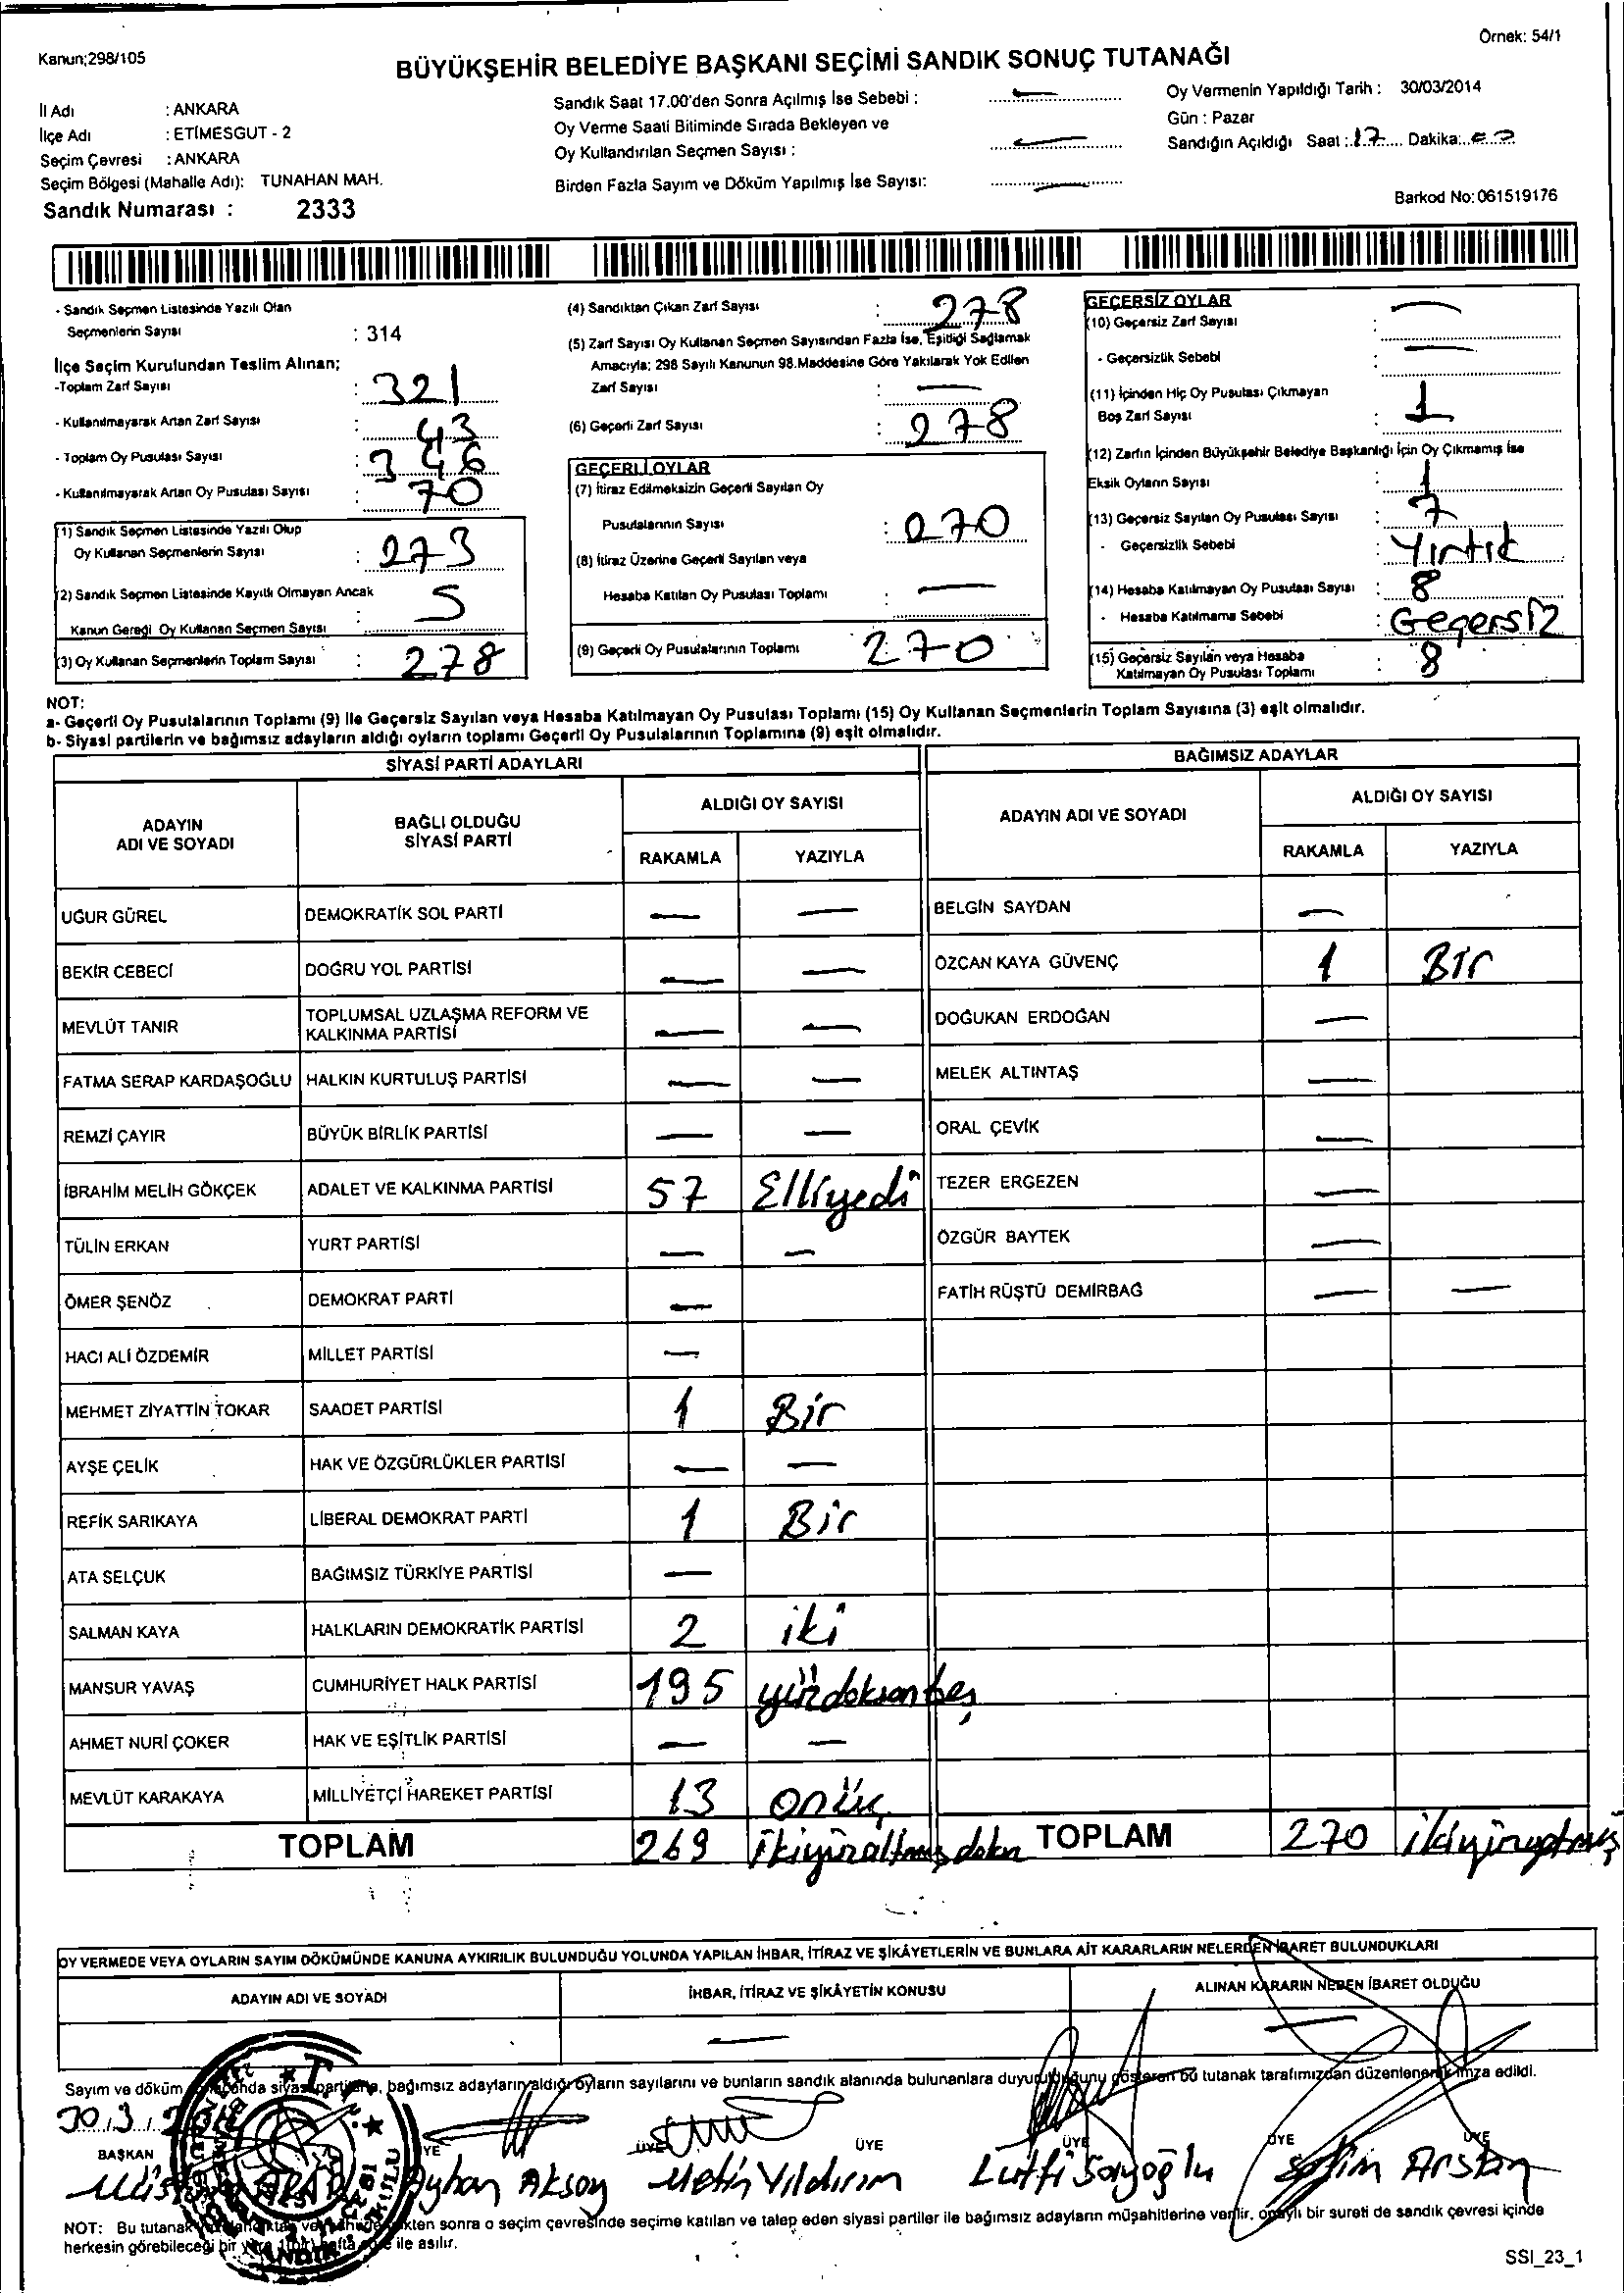 Örnek: 54/1
Kanun;298/105
BÜYÜKŞEHİR BELEDİYE BAŞKANI SEÇİMİ SANDIK SONUÇ TUTANAĞI
İl Adı : ANKARA
İlçe Adı : ETİMESGUT - 2
Seçim Çevresi : ANKARA
Seçim Bölgesi (Mahalle Adı): TUNAHAN MAH.
Sandık Numarası : 2333
Sandık Saat 17.00'den Sonra Açılmış İse Sebebi : —
Oy Verme Saati Bitiminde Sırada Bekleyen ve
Oy Kullandırılan Seçmen Sayısı : —
Birden Fazla Sayım ve Döküm Yapılmış İse Sayısı: —
Oy Vermenin Yapıldığı Tarih : 30/03/2014
Gün : Pazar
Sandığın Açıldığı Saat : 17 Dakika: 00
Barkod No:061519176
- Sandık Seçmen Listesinde Yazılı Olan
Seçmenlerin Sayısı : 314
İlçe Seçim Kurulundan Teslim Alınan;
-Toplam Zarf Sayısı : 321
- Kullanılmayarak Artan Zarf Sayısı : 43
- Toplam Oy Pusulası Sayısı : 346
- Kullanılmayarak Artan Oy Pusulası Sayısı : 70
(1) Sandık Seçmen Listesinde Yazılı Olup
Oy Kullanan Seçmenlerin Sayısı : 273
(2) Sandık Seçmen Listesinde Kayıtlı Olmayan Ancak
Kanun Gereği Oy Kullanan Seçmen Sayısı : 5
(3) Oy Kullanan Seçmenlerin Toplam Sayısı : 278
(4) Sandıktan Çıkan Zarf Sayısı : 278
(5) Zarf Sayısı Oy Kullanan Seçmen Sayısından Fazla İse, Eşitliği Sağlamak
Amacıyla; 298 Sayılı Kanunun 98.Maddesine Göre Yakılarak Yok Edilen
Zarf Sayısı : —
(6) Geçerli Zarf Sayısı : 278
GEÇERLİ OYLAR
(7) İtiraz Edilmeksizin Geçerli Sayılan Oy
Pusulalarının Sayısı : 270
(8) İtiraz Üzerine Geçerli Sayılan veya
Hesaba Katılan Oy Pusulası Toplamı : —
(9) Geçerli Oy Pusulalarının Toplamı 270
GEÇERSİZ OYLAR
(10) Geçersiz Zarf Sayısı : —
- Geçersizlik Sebebi : —
(11) İçinden Hiç Oy Pusulası Çıkmayan
Boş Zarf Sayısı : 1
(12) Zarfın İçinden Büyükşehir Belediye Başkanlığı İçin Oy Çıkmamış İse
Eksik Oyların Sayısı : 1
(13) Geçersiz Sayılan Oy Pusulası Sayısı : 7
- Geçersizlik Sebebi : Yırtık
(14) Hesaba Katılmayan Oy Pusulası Sayısı : 8
- Hesaba Katılmama Sebebi : Geçersiz
(15) Geçersiz Sayılan veya Hesaba
Katılmayan Oy Pusulası Toplamı : 8
NOT:
a- Geçerli Oy Pusulalarının Toplamı (9) İle Geçersiz Sayılan veya Hesaba Katılmayan Oy Pusulası Toplamı (15) Oy Kullanan Seçmenlerin Toplam Sayısına (3) eşit olmalıdır.
b- Siyasi partilerin ve bağımsız adayların aldığı oyların toplamı Geçerli Oy Pusulalarının Toplamına (9) eşit olmalıdır.
SİYASİ PARTİ ADAYLARI
BAĞIMSIZ ADAYLAR
ADAYIN ADI VE SOYADI
BAĞLI OLDUĞU SİYASİ PARTİ
ALDIĞI OY SAYISI
RAKAMLA YAZIYLA
ADAYIN ADI VE SOYADI
ALDIĞI OY SAYISI
RAKAMLA YAZIYLA
UĞUR GÜREL DEMOKRATİK SOL PARTİ — — BELGİN SAYDAN —
BEKİR CEBECİ DOĞRU YOL PARTİSİ — — ÖZCAN KAYA GÜVENÇ 1 Bir
MEVLÜT TANIR TOPLUMSAL UZLAŞMA REFORM VE KALKINMA PARTİSİ — — DOĞUKAN ERDOĞAN —
FATMA SERAP KARDAŞOĞLU HALKIN KURTULUŞ PARTİSİ — — MELEK ALTINTAŞ —
REMZİ ÇAYIR BÜYÜK BİRLİK PARTİSİ — — ORAL ÇEVİK —
İBRAHİM MELİH GÖKÇEK ADALET VE KALKINMA PARTİSİ 57 Elliyedi TEZER ERGEZEN —
TÜLİN ERKAN YURT PARTİSİ — — ÖZGÜR BAYTEK —
ÖMER ŞENÖZ DEMOKRAT PARTİ — FATİH RÜŞTÜ DEMİRBAĞ — —
HACI ALİ ÖZDEMİR MİLLET PARTİSİ —
MEHMET ZİYATTİN TOKAR SAADET PARTİSİ 1 Bir
AYŞE ÇELİK HAK VE ÖZGÜRLÜKLER PARTİSİ — —
REFİK SARIKAYA LİBERAL DEMOKRAT PARTİ 1 Bir
ATA SELÇUK BAĞIMSIZ TÜRKİYE PARTİSİ —
SALMAN KAYA HALKLARIN DEMOKRATİK PARTİSİ 2 iki
MANSUR YAVAŞ CUMHURİYET HALK PARTİSİ 195 yüzdoksanbeş
AHMET NURİ ÇOKER HAK VE EŞİTLİK PARTİSİ — —
MEVLÜT KARAKAYA MİLLİYETÇİ HAREKET PARTİSİ 13 onüç
TOPLAM 269 ikiyüzaltmışdokuz TOPLAM 270 ikiyüzyetmiş
OY VERMEDE VEYA OYLARIN SAYIM DÖKÜMÜNDE KANUNA AYKIRILIK BULUNDUĞU YOLUNDA YAPILAN İHBAR, İTİRAZ VE ŞİKÂYETLERİN VE BUNLARA AİT KARARLARIN NELERDEN İBARET BULUNDUKLARI
ADAYIN ADI VE SOYADI İHBAR, İTİRAZ VE ŞİKÂYETİN KONUSU ALINAN KARARIN NEDEN İBARET OLDUĞU
— —
Sayım ve döküm sonunda siyasi partilerin, bağımsız adayların aldığı oyların sayılarını ve bunların sandık alanında bulunanlara duyurulduğunu gösteren bu tutanak tarafımızdan düzenlenerek imza edildi.
30.3.2014
BAŞKAN ÜYE ÜYE ÜYE ÜYE ÜYE ÜYE
Ayhan Aksoy Metin Yıldırım Lütfi Soyoğlu Arslan
NOT: Bu tutanak sonra o seçim çevresinde seçime katılan ve talep eden siyasi partiler ile bağımsız adayların müşahitlerine verilir, onaylı bir sureti de sandık çevresi içinde
herkesin görebileceği bir yere 1(bir) hafta süre ile asılır.
SSI_23_1